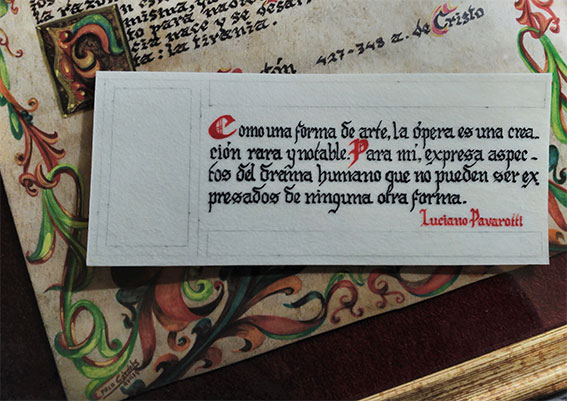 la razón es
misma,
to para nadie
cia nace y se desar
ta: la tiranía.
427-348 a. de Cristo
Como una forma de arte, la ópera es una crea-
ción rara y notable. Para mí, expresa aspec-
tos del drama humano que no pueden ser ex
presados de ninguna otra forma.
Luciano Pavarotti